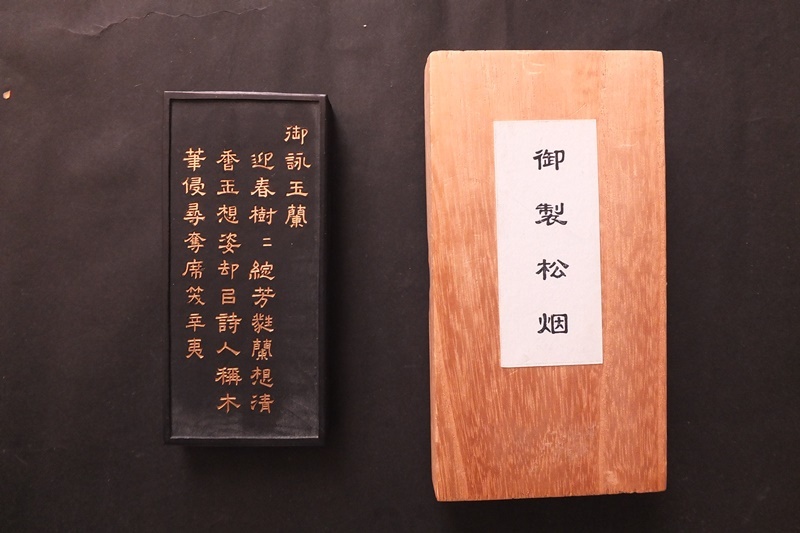 御詠玉蘭
迎春樹〻綻芳蕤蘭想清
香玉想姿却㠯詩人稱木
筆侵尋奪席笑辛夷
御製松烟